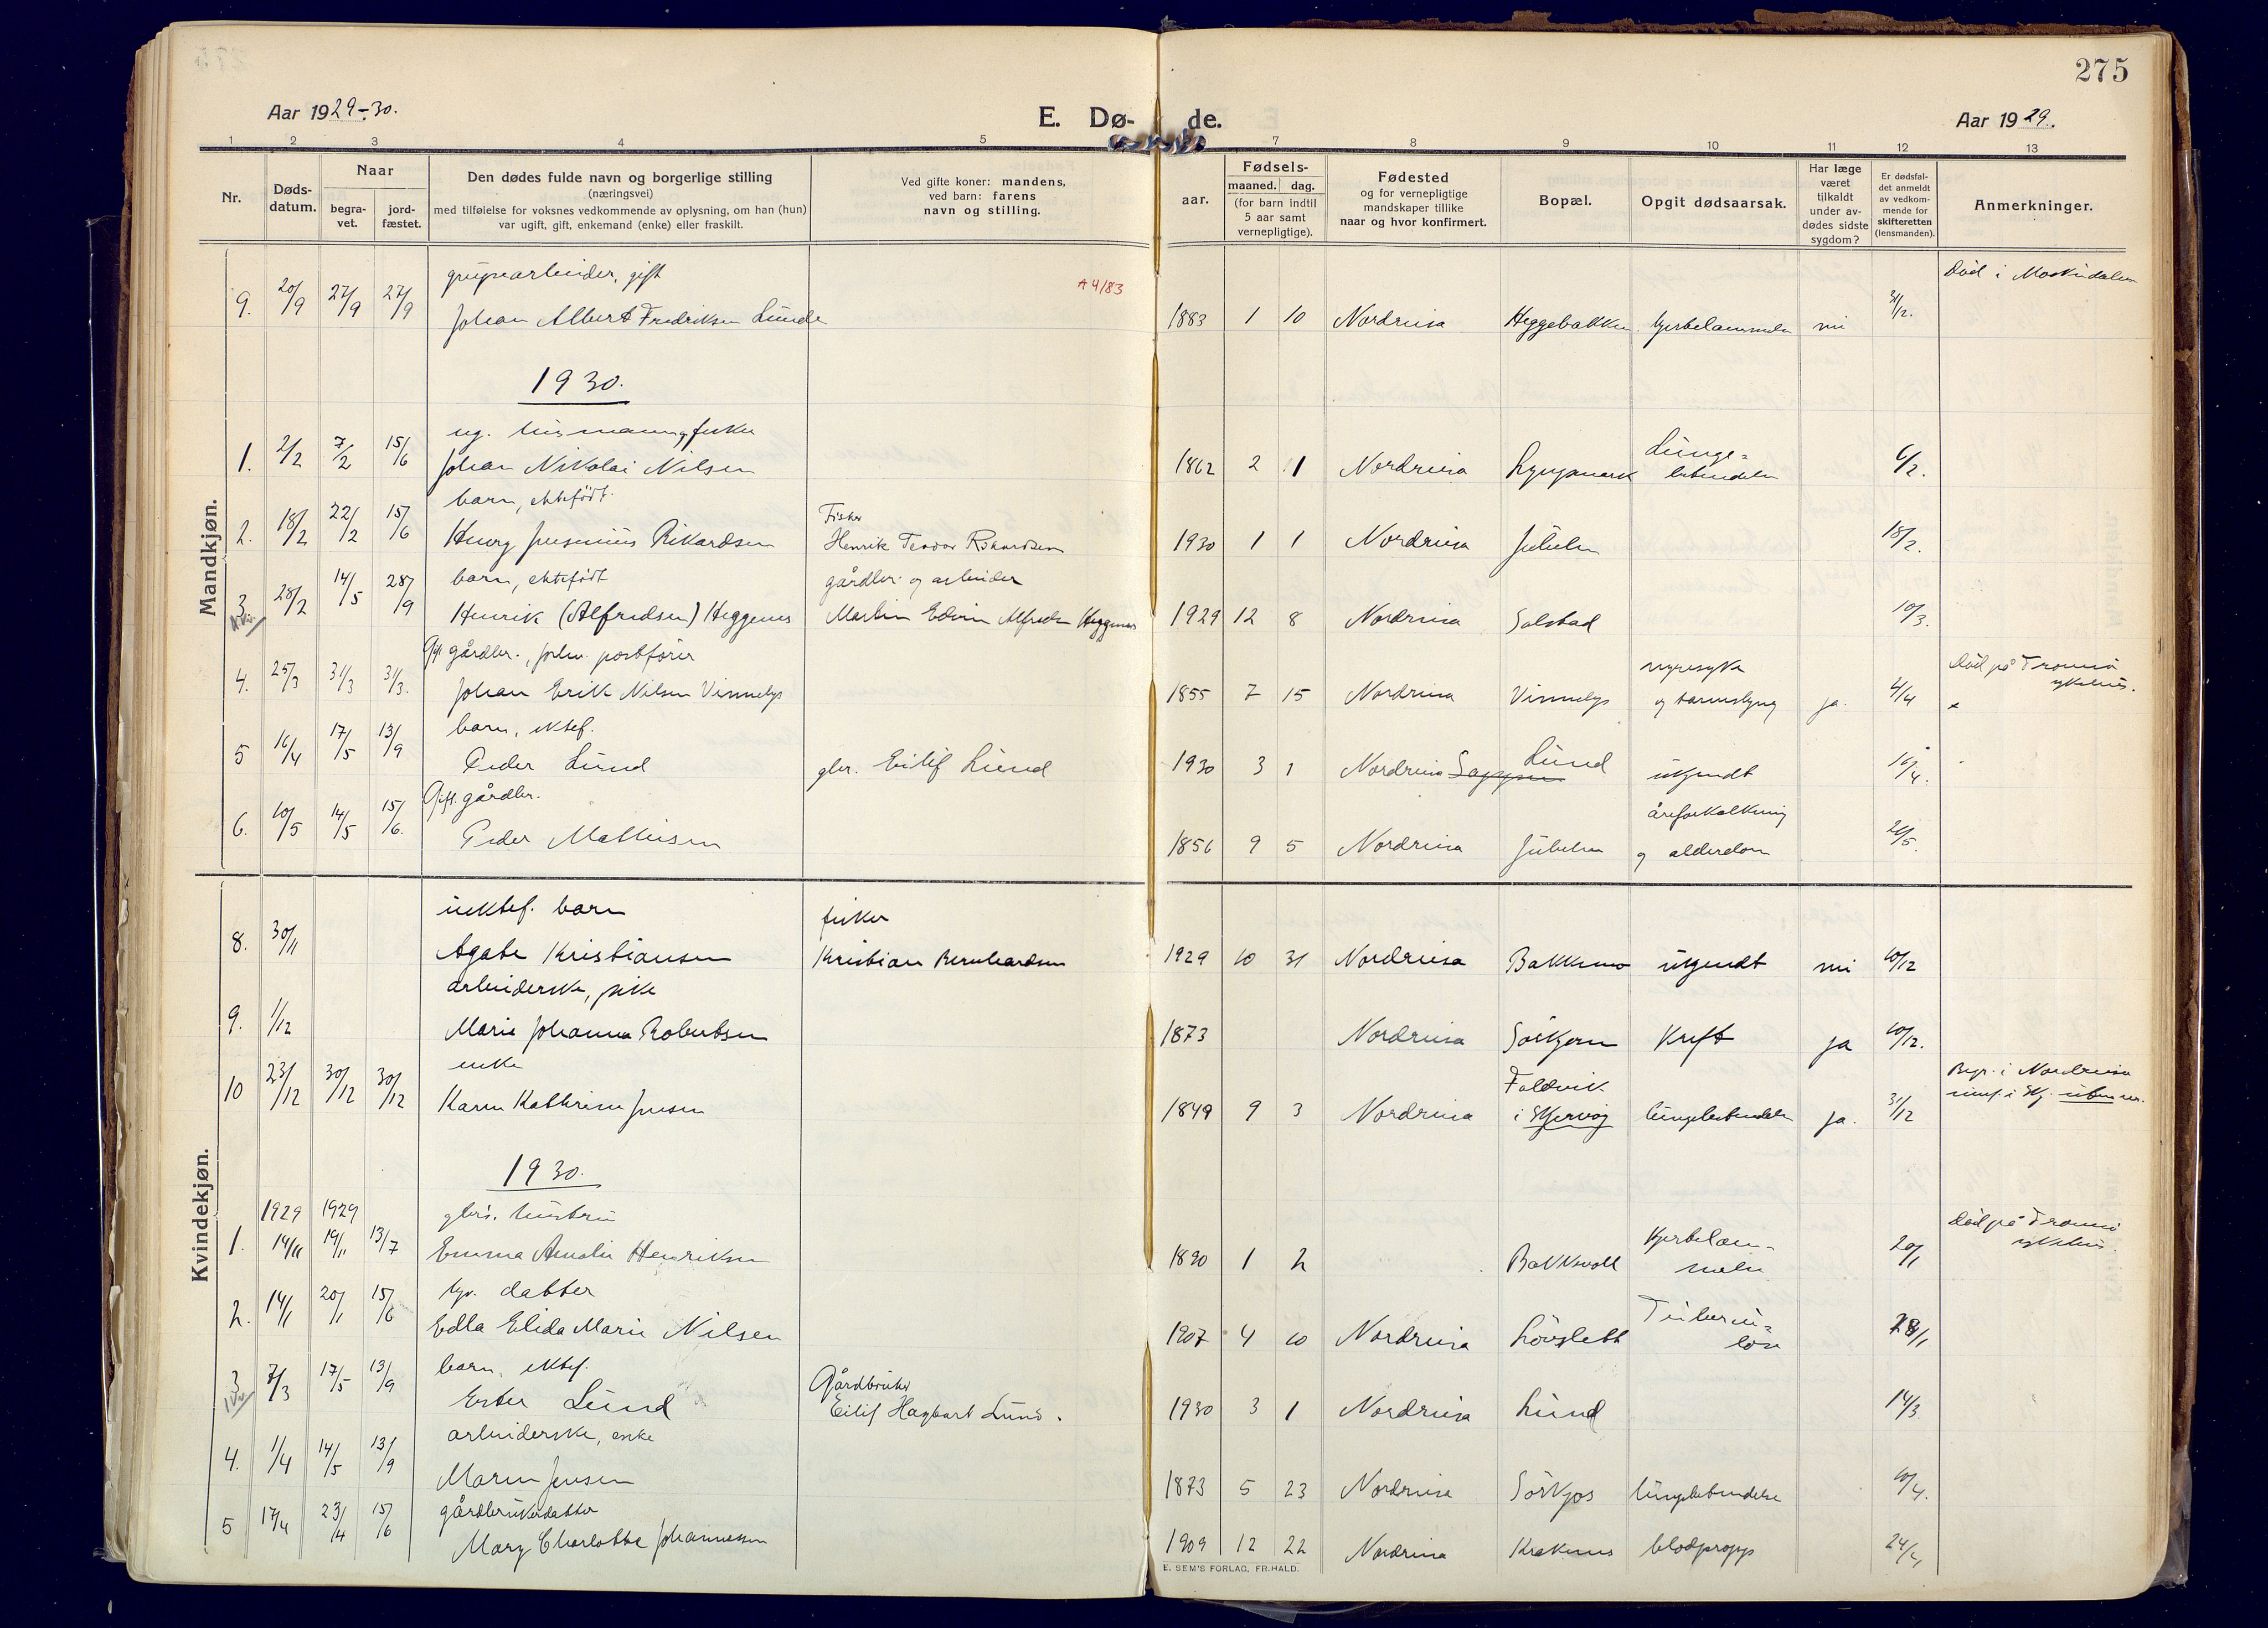 275
Aar 1929-30.
E. Dø-
de.
Aar 1929.
1 2 3 4 5 7 8 9 10 11 12 13
Nr.
Døds-
datum.
Naar
begra-
vet.
jord-
fæstet.
Den dødes fulde navn og borgerlige stilling
(næringsvei)
med tilføielse for voksnes vedkommende av oplysning, om han (hun)
var ugift, gift, enkemand (enke) eller fraskilt.
Ved gifte koner: mandens,
ved barn: farens
navn og stilling.
aar.
Fødsels-
maaned. dag.
(for barn indtil
5 aar samt
vernepligtige).
Fødested
og for vernepligtige
mandskaper tillike
naar og hvor konfirmert.
Bopæl.
Opgit dødsaarsak.
Har læge
været
tilkaldt
under av-
dødes sidste
sygdom?
Er dødsfal-
det anmeldt
av vedkom-
mende for
skifteretten
(lensmanden).
Anmerkninger.
Mandkjøn.
grubearbeider, gift
A 4/83
Död i
9. 20/9 27/9 27/9 Johan Albert Fredriksen Lunde 1883 1 10 Nordreisa Heggebakken hjertelammelse nei 31/12.
1930.
ug. husmann og fisker
1. 2/2 7/2 15/6 Johan Nikolai Nilsen 1862 2 11 Nordreisa Lyngsmark Lunge=
betendelse 6/2.
barn, ektefödt.
Fisker
2. 18/2 22/2 15/6 Rikardsen Henrik Teodor Rikardsen 1930 1 1 Nordreisa Jubelen 18/2.
barn, ektefödt gårdbr. og arbeider
3. 28/2 14/5 28/9 Henrik (Alfredsen) Heggenes Martin Edvin Alfredsen Heggenes 1929 12 8 Nordreisa Solstad 10/3.
Gift gårdbr., forhv. postfører
nyresyke
Död på Tromsö
sykehus.
4. 25/3 31/3 31/3. Johan Erik Nilsen Vinnelys 1855 7 15 Nordreisa Vinnelys og tarmslyng ja. 4/4
barn, ektef.
5 16/4 17/5 13/9 Peder Lund gbr. Eilif Lund 1930 3 1 Nordreisa Sappen Lund ukjendt 16/4.
Gift. gårdbr.
åreforkalkning
6. 10/5 14/5 15/6. Peder Mathisen 1856 9 5 Nordreisa Jubelen og alderdom 26/5.
Kvindekjøn.
uektef. barn fisker
8. 30/11 Agate Kristiansen Kristian Bernhardsen 1929 10 31 Nordreisa Bakkemo ukjendt nei 10/12
arbeiderske, pike
9. 1/12 Marie Johanna Robertsen 1873 Nordreisa Sörkjosen Kreft ja 10/12.
enke
Foldvik
Begr. i Nordreisa
10 23/12 30/12 30/12 Karen Kathrine Jensen 1849 9 3 Nordreisa i Skjervöy lungebetendelse ja. 31/12
1930.
1929 1929 gbrs. hustru
Död på Tromsö
sykehus.
1. 14/11 19/11 13/7 Emma Amalie Henriksen 1890 1 2 Bakkevoll Hjertelam-
melse 20/1
datter
2. 14/1 20/1 15/6 Edla Elida Marie Nilsen 1907 4 10 Nordreisa Lövslett Tuberku=
lose 28/1
barn, ektef.
Gårdbruker
3 7/3 17/5 13/9 Ester Lund Eilif Hagbart Lund. 1930 3 1 Nordreisa Lund 14/3.
arbeiderske, enke
4. 1/4 14/5 13/9 Maren Jensen 1873 5 23 Nordreisa Sörkjos lungebetendelse 10/4.
gårdbrukerdatter
5 17/4 23/4 15/6 Mary Charlotte Johannessen 1909 12 22 Nordreisa Krakenes blodpropp 24/4
E. SEM'S FORLAG, FR.HALD.